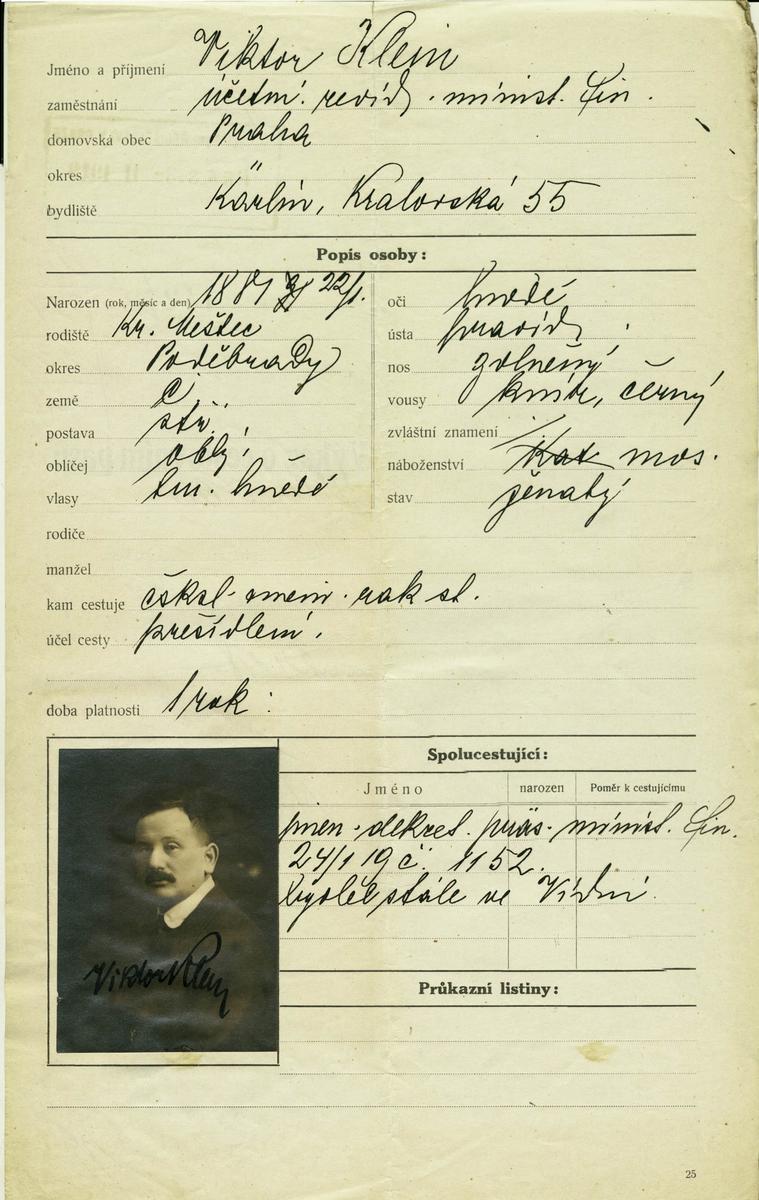 Jméno a příjmení Viktor Klein
zaměstnání účetní. revid. minist. fin.
domovská obec Praha
okres
bydliště Karlín, Kralovská 55
Popis osoby:
Narozen (rok, měsíc a den) 1881 22/1.
rodiště Kr. Městec
okres Poděbrady
země Č
postava stř.
obličej oblý
vlasy tm. hnědé
oči hnědé
ústa pravid.
nos
vousy knír, černý
zvláštní znamení /
náboženství Kat mos.
stav ženatý
rodiče
manžel
kam cestuje čsksl. rak st.
účel cesty přesídlení.
doba platnosti 1 rok
Spolucestující:
Jméno narozen Poměr k cestujícímu
jmen. dekret. präs. minist. fin.
24/1 19 č. 1152.
stále ve Vídni
Viktor Klein
Průkazní listiny:
25